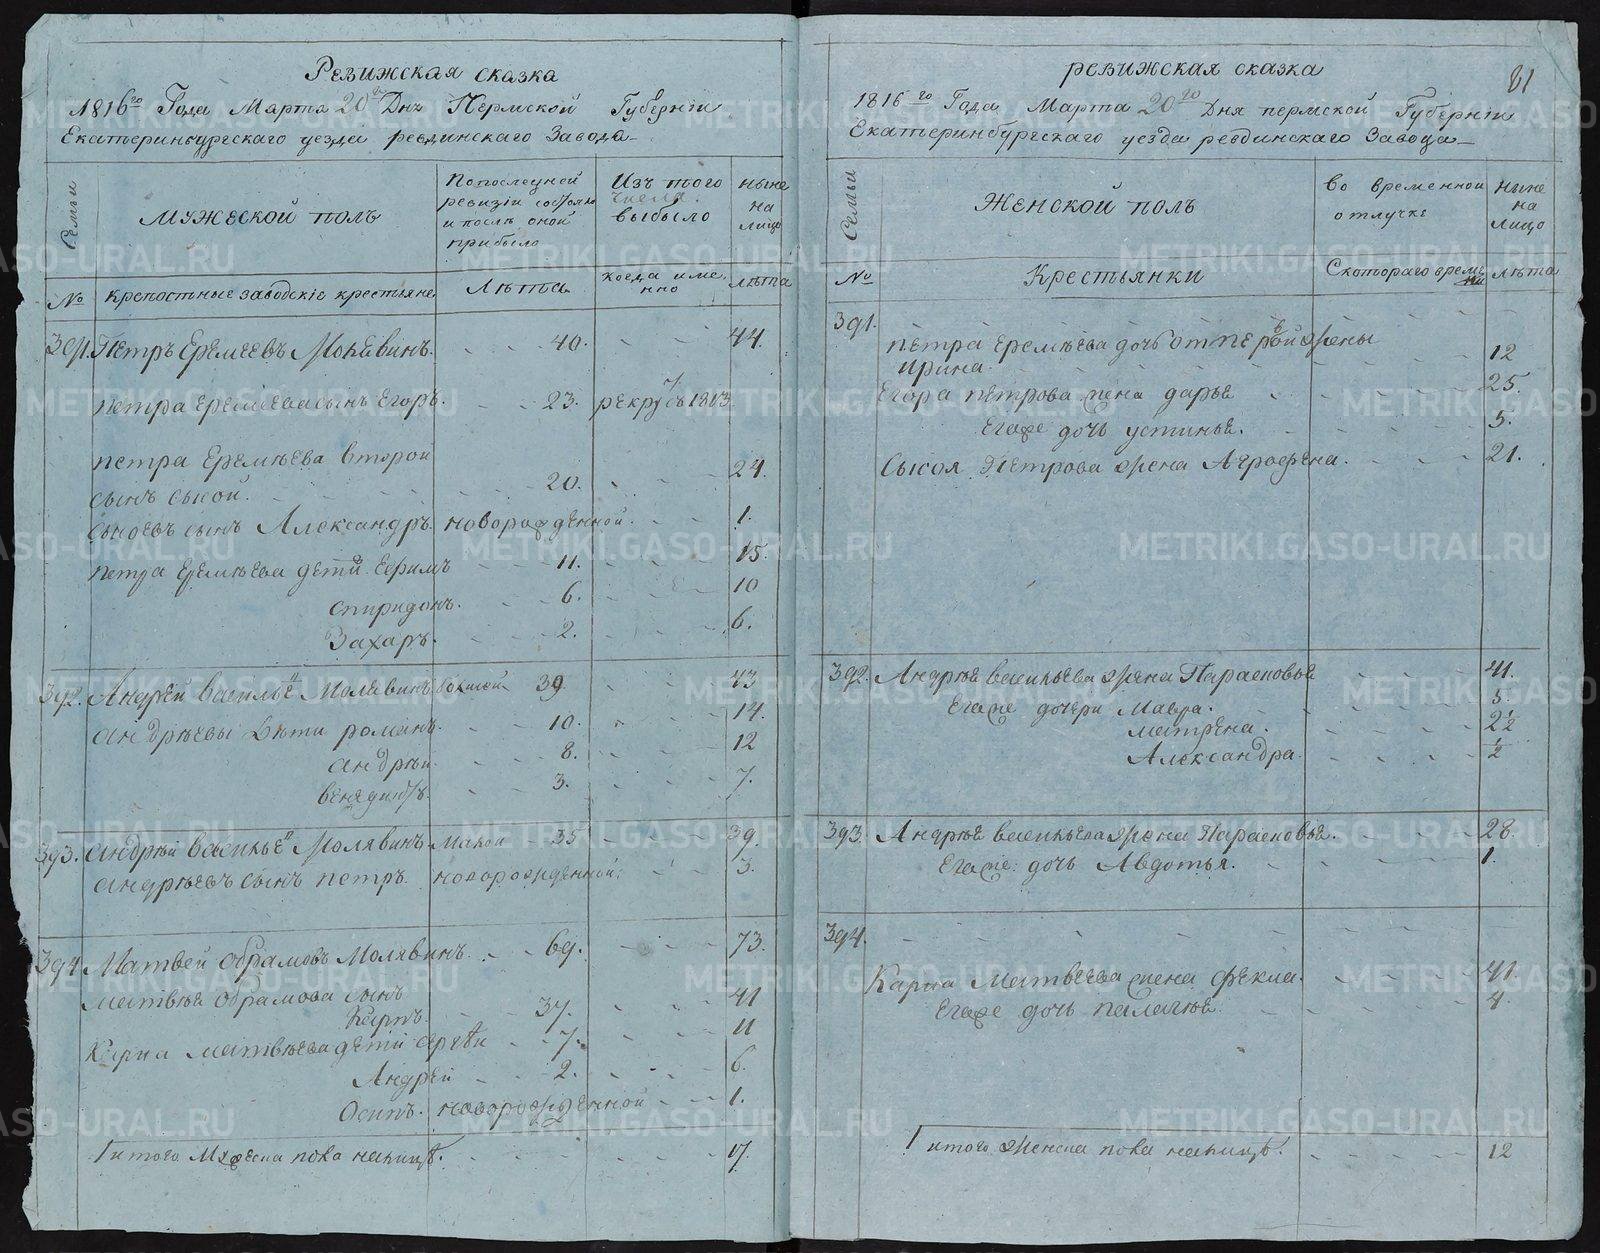 Ревижская сказка
1816го Года Марта 20го Дня Пермской Губернiи
Екатеринбургскаго уезда ревдинскаго Завода
Семьи
Мужеской полъ
По последней ревизiи состояло и после оной прибыло
Изъ того числа выбыло
ныне на лицо
№
крепостные заводскiе крестьяне
Лѣта
когда именно
лѣта
391. Петръ Еремеевъ Молявинъ. 40. 44.
петра Еремеева сынъ Егоръ. 23. рекрутъ 1813
петра Еремѣева второй
сынъ сысой. 20. 24.
сысоевъ сынъ Александръ новорожденной. 1.
петра Еремѣева дети Ефимъ 11. 15.
спиридонъ. 6. 10
Захаръ. 2. 6.
392. Андрей васильевъ Молявинъ большой 39 43
андрѣевы дѣти романъ. 10. 14.
андрѣй. 8. 12
венядиктъ. 3. 7.
393. андрѣй васильевъ Молявинъ малой 35 39.
андрѣевъ сынъ петръ. новорожденной. 3.
394 Матвей обрамовъ Молявинъ. 69. 73.
матвѣя обрамова сынъ
Карпъ. 37. 41
Карпа матвѣева дети сергѣй 7. 11
Андрей 2. 6.
Осипъ. новорожденной 1.
итого Мужеска пола налицѣ. 17.
ревижская сказка
81
1816го Года Марта 20го Дня пермской Губернiи
Екатеринбургскаго уезда ревдинскаго Завода
Семьи
Женской полъ
во временной отлучке
ныне на лицо
№
Крестьянки
С котораго времени
лѣта
391.
петра Еремѣева дочь от первой жены
ирина. 12
Егора петрова жена дарья 25.
Егоже дочь устинья. 5.
Сысоя Петрова жена Аграфена. 21.
392. Андрѣя васильева жена Парасковья 41.
Егоже дочери Мавра. 5.
матрена. 2 1/2
Александра. 1/2
393. Андрѣя васильева жена Парасковья. 28.
Егоже дочь Авдотья. 1.
394.
Карпа Матвѣева жена Фекла. 41.
Егоже дочь палагѣя. 4.
итого Женска пола налицѣ. 12
METRIKI.GASO-URAL.RU